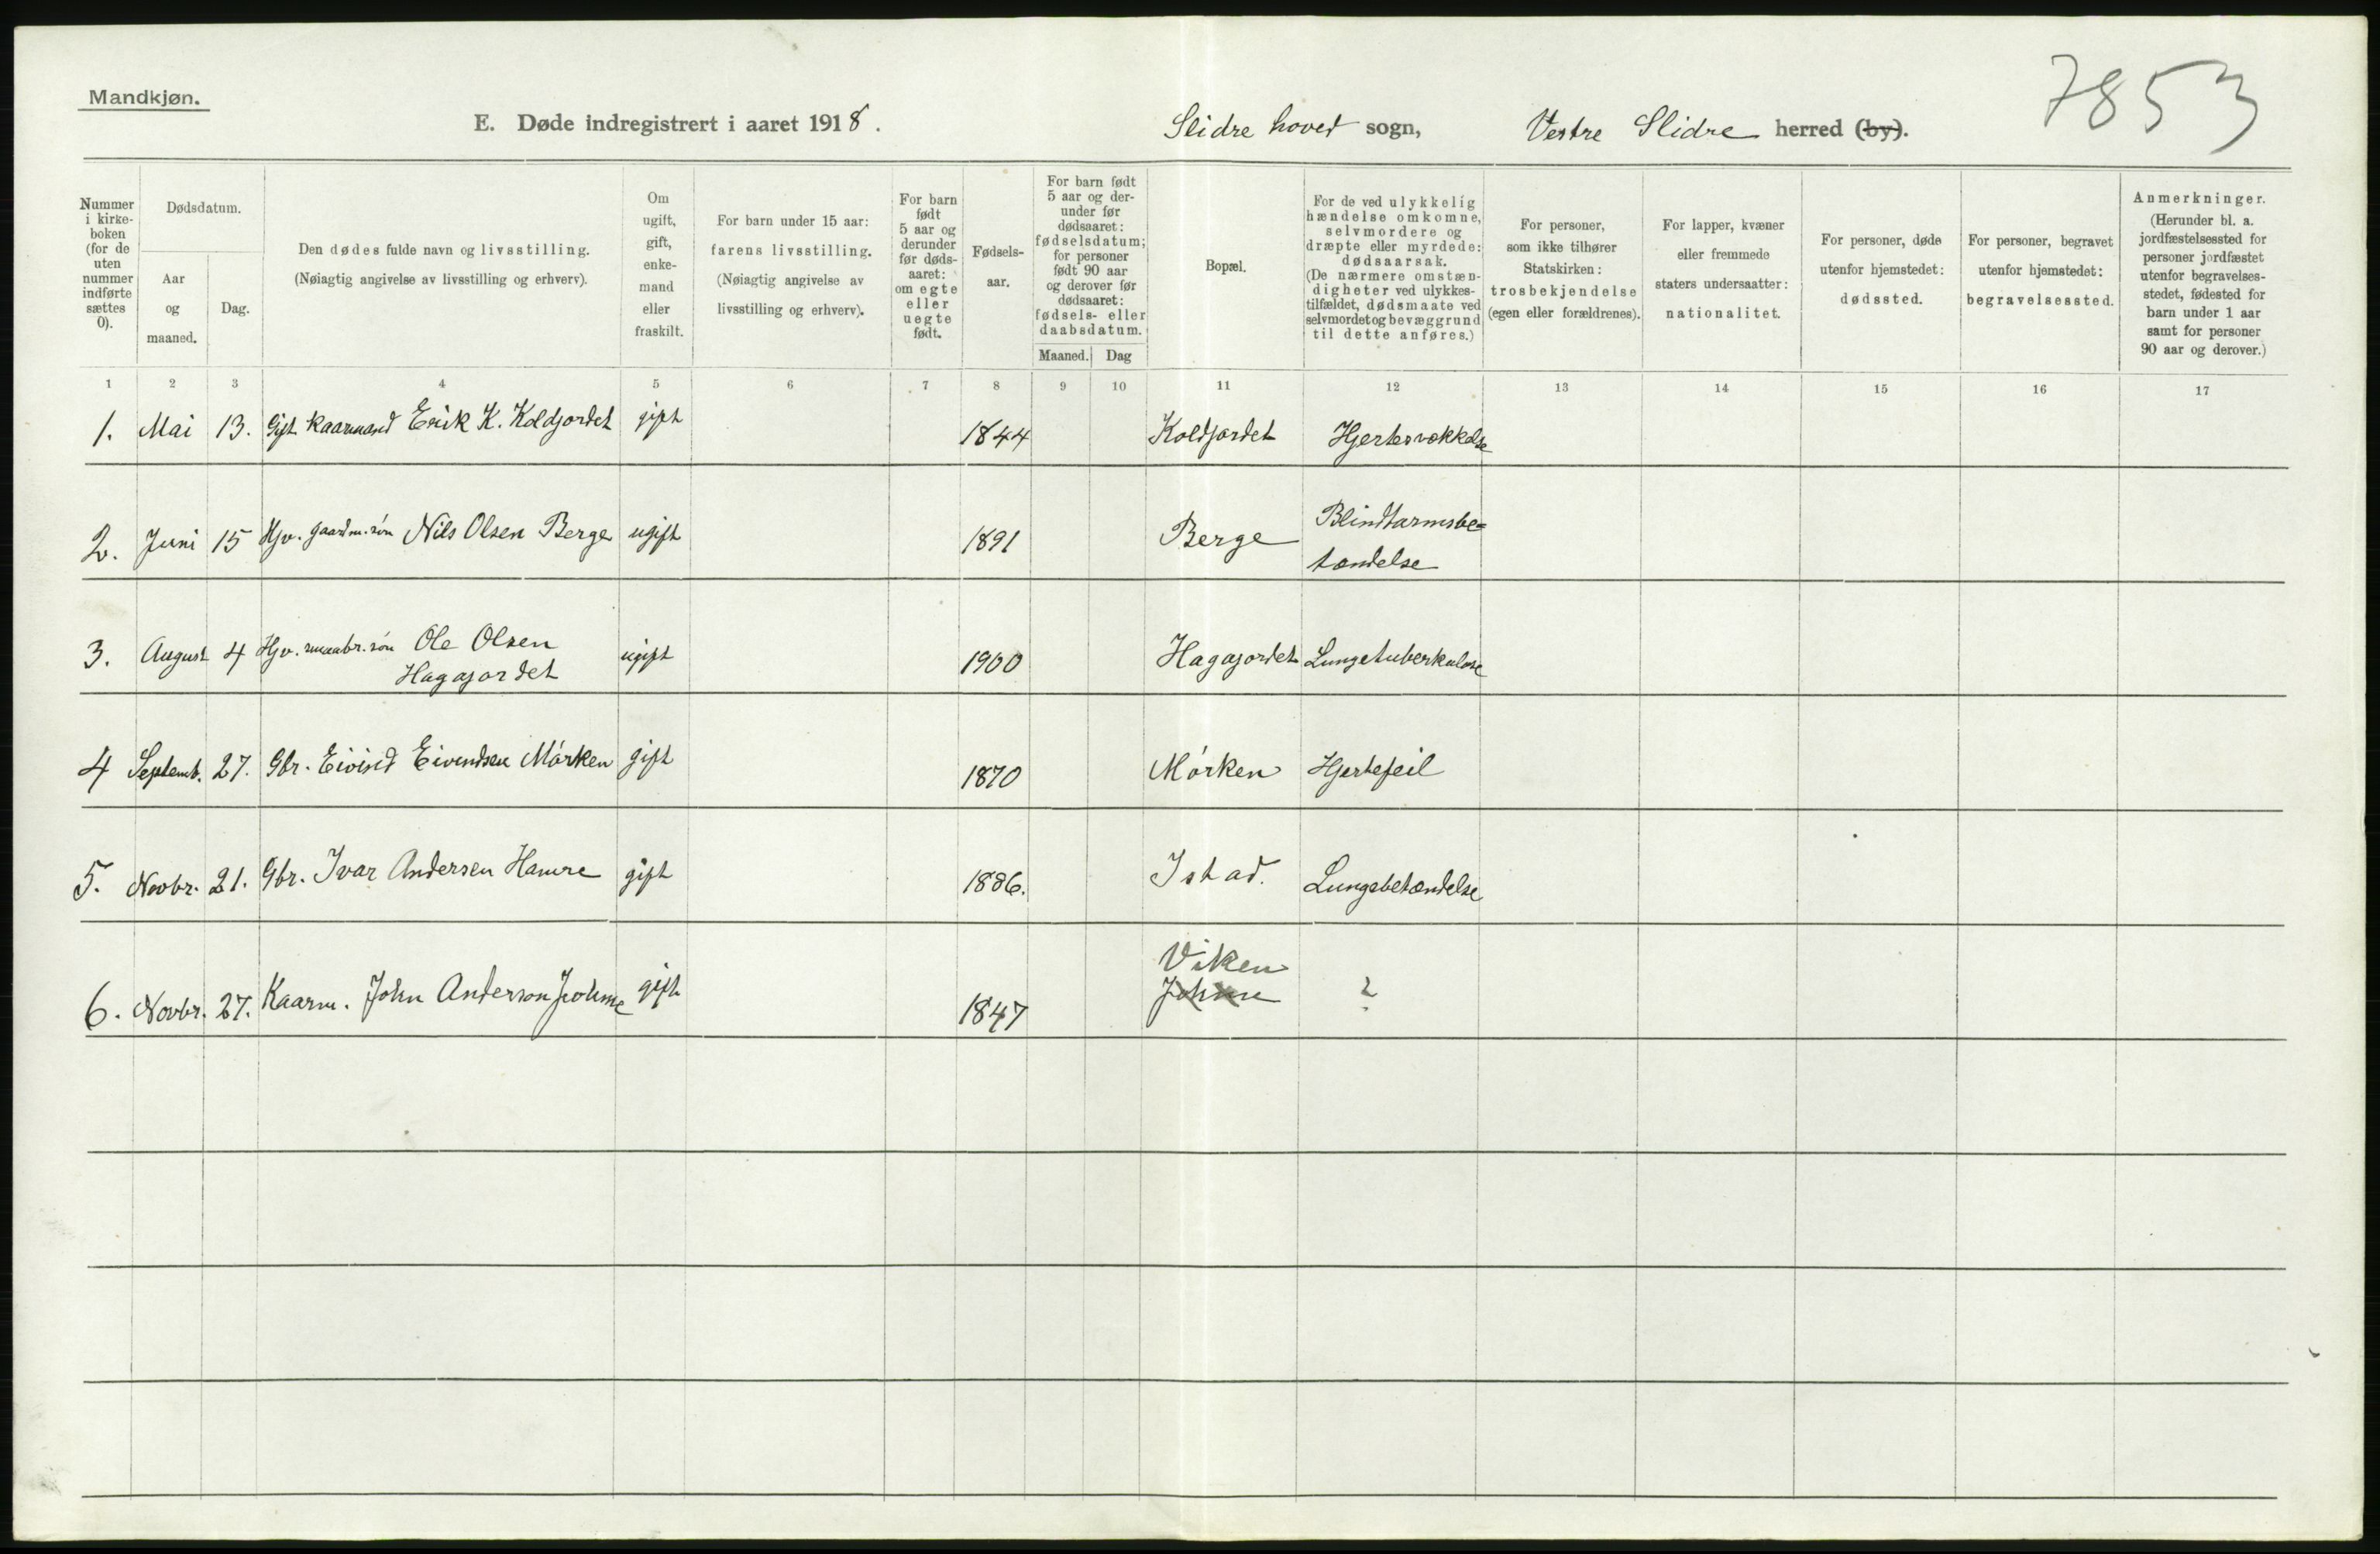 Mandkjøn.
7853
E. Døde indregistrert i aaret 1918.
Slidre hoved sogn, Vestre Slidre herred (by).
Nummer i kirkeboken (for de uten nummer indførte sættes 0).
Dødsdatum.
Aar og maaned.
Dag.
Den dødes fulde navn og livsstilling.
(Nøiagtig angivelse av livsstilling og erhverv).
Om ugift, gift, enkemand eller fraskilt.
For barn under 15 aar: farens livsstilling.
(Nøiagtig angivelse av livsstilling og erhverv).
For barn født 5 aar og derunder før dødsaaret: om egte eller uegte født.
Fødselsaar.
For barn født 5 aar og derunder før dødsaaret: fødselsdatum; for personer født 90 aar og derover før dødsaaret: fødsels- eller daabsdatum.
Maaned. Dag
Bopæl.
For de ved ulykkelig hændelse omkomne, selvmordere og dræpte eller myrdede: dødsaarsak.
(De nærmere omstændigheter ved ulykkestilfældet, dødsmaate ved selvmordet og bevæggrund til dette anføres.)
For personer, som ikke tilhører Statskirken: trosbekjendelse (egen eller forældrenes).
For lapper, kvæner eller fremmede staters undersaatter: nationalitet.
For personer, døde utenfor hjemstedet: dødssted.
For personer, begravet utenfor hjemstedet: begravelsessted.
Anmerkninger.
(Herunder bl. a. jordfæstelsessted for personer jordfæstet utenfor begravelsesstedet, fødested for barn under 1 aar samt for personer 90 aar og derover.)
1 2 3 4 5 6 7 8 9 10 11 12 13 14 15 16 17
1. Mai 13. Gift kaarmand Erik K. Koldjordet gift 1844 Koldjordet Hjertesvækkelse
2. Juni 15 Hjv. gaardm.søn Nils Olsen Berge ugift 1891 Berge Blindtarmsbe=
tændelse
3. August 4 Hjv. smaabr.søn Ole Olsen
Hagajordet ugift 1900 Hagajordet Lungetuberkulose
4 Septemb. 27. Gbr. Eivind Eivindsen Mörken gift 1870 Mörken Hjertefeil
5. Novbr. 21. Gbr. Ivar Andersen Hamre gift 1886. Istad. Lungebetændelse
Viken
6. Novbr. 27. Kaarm. John Anderson gift 1847 ?